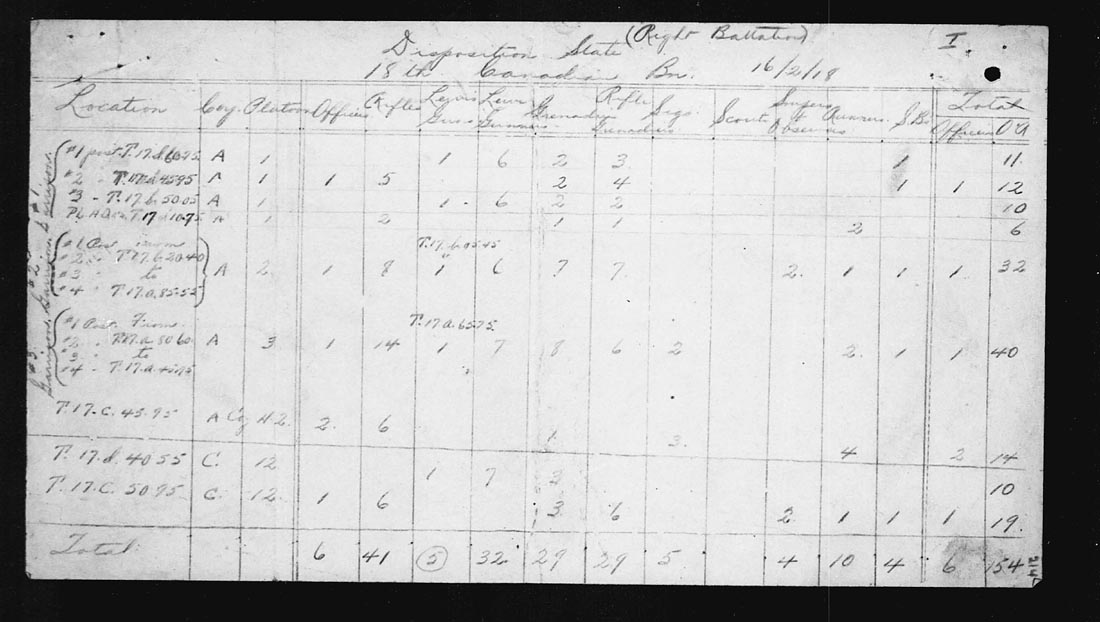 (Right Battalion) I
Disposition State
18th Canadian Bn. 16/2/18
Location Coy. Platoon Officers Rifle Lewis Guns Lewis Gunners Grenadiers Rifle Grenadiers Sigs. Scouts Snipers & Observers Runners S.Bs Total Officers O.R.
#1 post T.17.d.60.75 A 1 1 6 2 3 1 11
#2 " T.17.d.45.95 A 1 1 5 2 4 1 1 12
#3 - T.17.b.50.05 A 1 1 - 6 2 2 10
Pl. H.Q. T.17.d.10.75 A 1 2 1 1 2 6
Garrison #1.
#1 Post From T.17.b.05.45
#2 " T.17.b.20.40
#3 " to A 2 1 8 1 6 7 7 2. 1 1 1 32
#4 " T.17.a.85.55
Garrison #2.
#1 Post From T.17.a.65.75
#2 " T.17.a.80.60 A 3 1 14 1 7 8 6 2 2 1 1 40
#3 " to
#4 - T.17.a.45.95
Garrison #3.
T.17.C.45.95 A Coy H.Q. 2. 6 1 3. 4 2 14
T.17.d.40 55 C. 12 1 7 3 10
T.17.C. 50 95 C. 12. 1 6 3 6 2 1 1 1 19.
Total 6 41 5 32 29 29 5 4 10 4 6 154